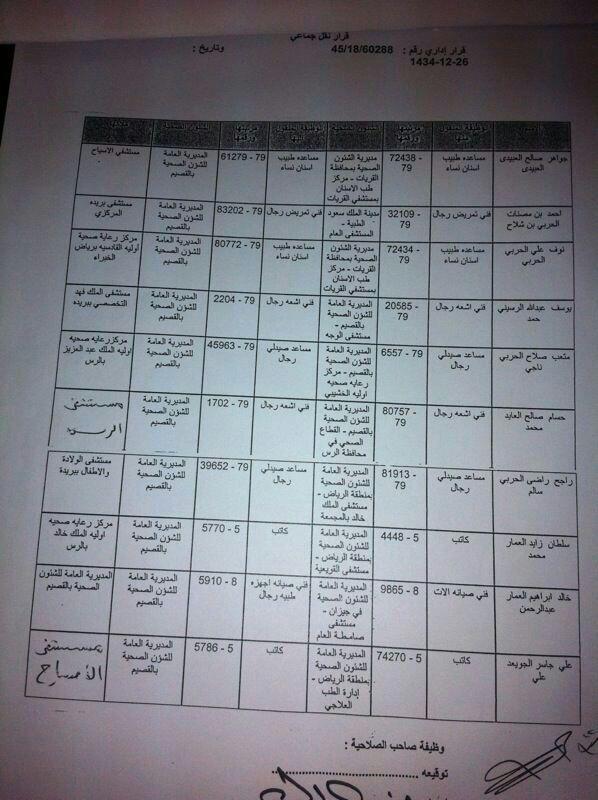 قرار نقل جماعي
قرار إداري رقم : 45/18/60288 وتاريخ :
1434-12-26
جواهر صالح العبيدى العبيدى | مساعده طبيب اسنان نساء | 72438 - 79 | مديرية الشئون الصحية بمحافظة القريات - مركز طب الاسنان بمستشفى القريات | مساعده طبيب اسنان نساء | 61279 - 79 | المديرية العامة للشؤن الصحية بالقصيم | مستشفى الاسياح
احمد بن مصنات الحربي بن شلاح | فني تمريض رجال | 32109 - 79 | مدينة الملك سعود الطبية - المستشفى العام | فني تمريض رجال | 83202 - 79 | المديرية العامة للشؤن الصحية بالقصيم | مستشفى بريده المركزي
نوف علي الحربي الحربي | مساعده طبيب اسنان نساء | 72434 - 79 | مديرية الشئون الصحية بمحافظة القريات - مركز طب الاسنان بمستشفى القريات | مساعده طبيب اسنان نساء | 80772 - 79 | المديرية العامة للشؤن الصحية بالقصيم | مركز رعاية صحية أوليه القادسيه برياض الخبراء
يوسف عبدالله الرسيني حمد | فني اشعه رجال | 20585 - 79 | المديرية العامة للشئون الصحية بالقصيم - مستشفى الوجه | فني اشعه رجال | 2204 - 79 | المديرية العامة للشؤن الصحية بالقصيم | مستشفى الملك فهد التخصصي ببريده
متعب صلاح الحربي ناجي | مساعد صيدلي رجال | 6557 - 79 | المديرية العامة للشئون الصحية بالقصيم - مركز رعايه صحيه اوليه الخشيبي | مساعد صيدلي رجال | 45963 - 79 | المديرية العامة للشؤن الصحية بالقصيم | مركز رعايه صحيه اوليه الملك عبد العزيز بالرس
حسام صالح العايد محمد | فني اشعه رجال | 80757 - 79 | المديرية العامة للشئون الصحية بالقصيم - القطاع الصحي في محافظة الرس | فني اشعه رجال | 1702 - 79 | المديرية العامة للشؤن الصحية بالقصيم | مستشفى الرس
راجح راضى الحربي سالم | مساعد صيدلي رجال | 81913 - 79 | المديرية العامة للشئون الصحية بمنطقة الرياض - مستشفى الملك خالد بالمجمعة | مساعد صيدلي رجال | 39652 - 79 | المديرية العامة للشؤن الصحية بالقصيم | مستشفى الولادة والاطفال ببريدة
سلطان زايد العمار محمد | كاتب | 4448 - 5 | المديرية العامة للشئون الصحية بمنطقة الرياض - مستشفى القويعية | كاتب | 5770 - 5 | المديرية العامة للشؤن الصحية بالقصيم | مركز رعايه صحيه اوليه الملك خالد بالرس
خالد ابراهيم العمار عبدالرحمن | فني صيانه الات | 9865 - 8 | المديرية العامة للشئون الصحية في جيزان - مستشفى صامطة العام | فني صيانه اجهزه طبيه رجال | 5910 - 8 | المديرية العامة للشؤن الصحية بالقصيم | المديرية العامة للشئون الصحية بالقصيم
علي جاسر الجويعد علي | كاتب | 74270 - 5 | المديرية العامة للشئون الصحية بمنطقة الرياض - إدارة الطب العلاجي | كاتب | 5786 - 5 | المديرية العامة للشؤن الصحية بالقصيم | مستشفى
وظيفة صاحب الصلاحية :
توقيعه